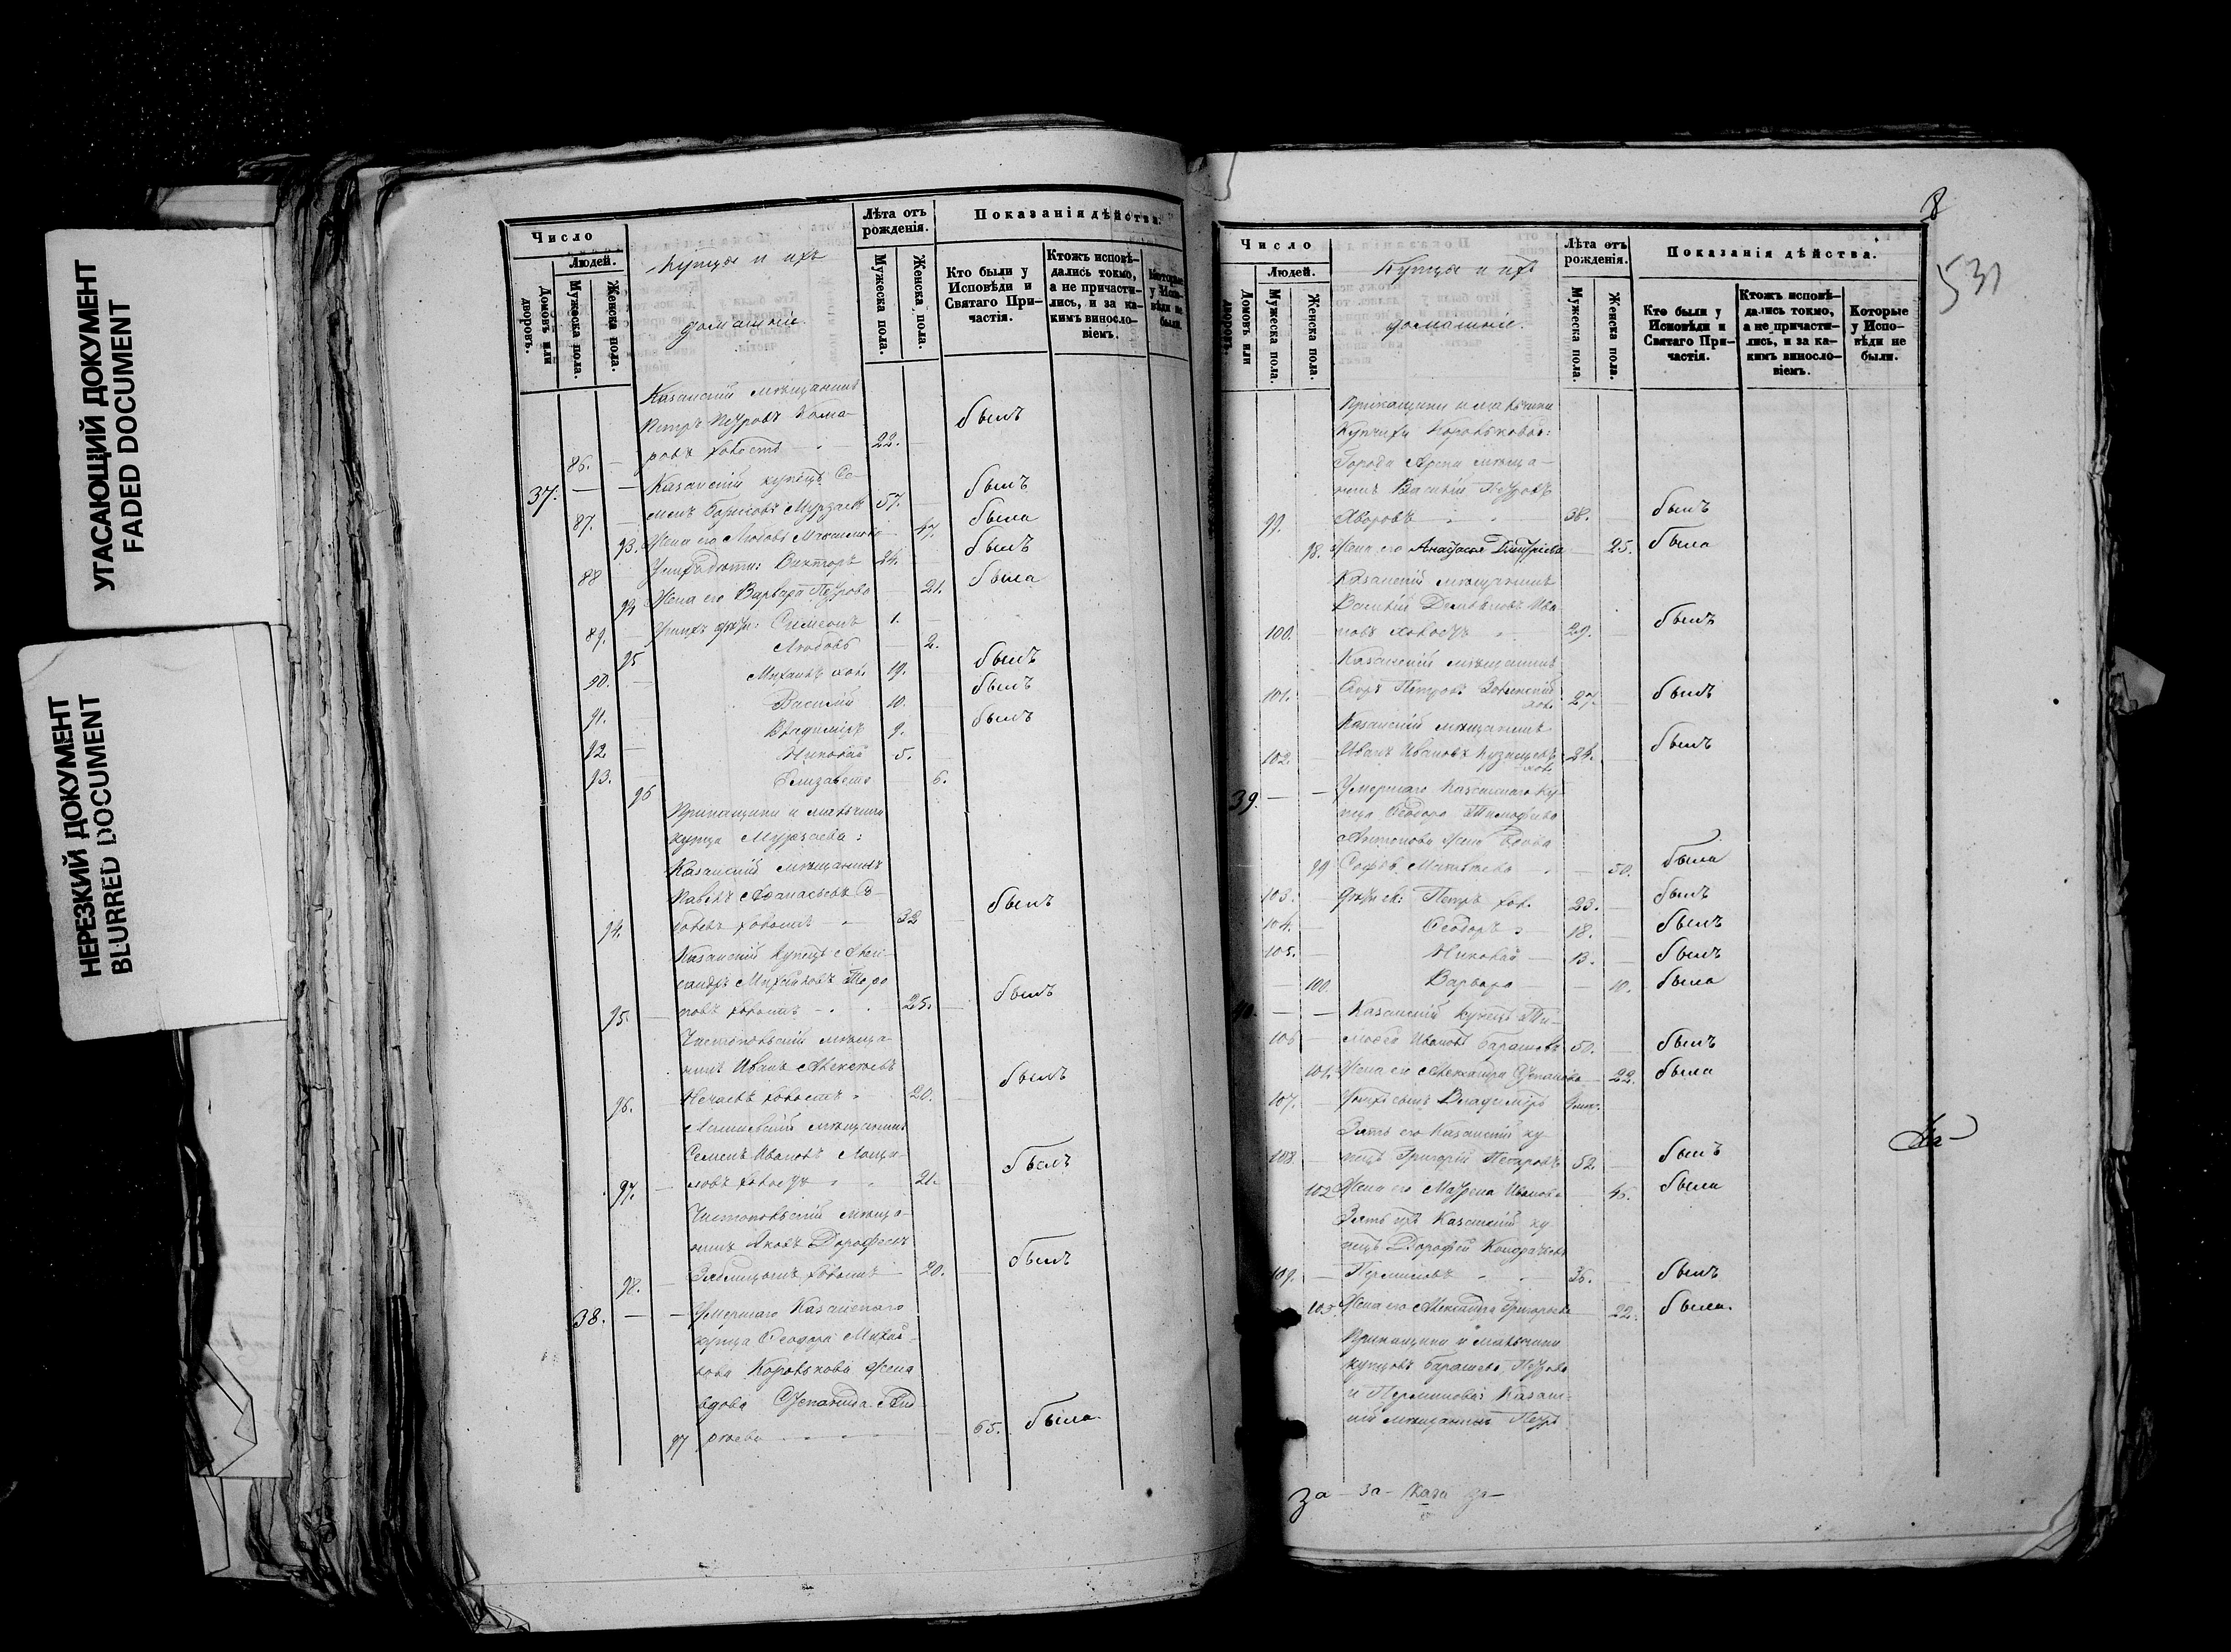 УГАСАЮЩИЙ ДОКУМЕНТ
FADED DOCUMENT
НЕРЕЗКИЙ ДОКУМЕНТ
BLURRED DOCUMENT
Число
Людей.
Домовъ или дворовъ.
Мужеска пола.
Женска пола.
Купцы и ихъ
домашніе.
Лѣта отъ рожденія.
Мужеска пола.
Женска пола.
Показанія дѣйства.
Кто были у Исповѣди и Святаго При-
частія.
Ктожъ исповѣ-
дались токмо,
а не причасти-
лись, и за ка-
кимъ винсло-
віемъ.
Которые
у Испо-
вѣди не
были.
Казанскій мѣщанинъ
Петръ Петровъ
86. — ровъ холостъ 22. — былъ
37. — — Казанскій купецъ Се-
87. — менъ Борисовъ Мурзаевъ 57. — былъ
93. Жена его Любовь — 47. была
88 — Унихъ дѣти: Викторъ 24. — былъ
94 Жена его Варвара Петрова — 21. была
89. — Унихъ дѣти: Симеонъ 1. —
95 Любовь — 2.
90. — Михаилъ хол. 19. — былъ
91. — Василій 10. — былъ
92. — Владиміръ 9. — былъ
93. — Николай 5. —
96 Елизавета — 6.
Прикащики и мальчики
купца Мурзаева:
Казанскій мѣщанинъ
Павелъ Афанасьевъ
94. холостъ 32 — былъ
Казанскій купецъ Алек-
сандръ Михайловъ
95. — повъ холостъ 25. — былъ
Чистопольскій мѣща-
нинъ Иванъ Алексѣевъ
96. Нечаевъ холостъ 20. — былъ
мѣщанинъ
Семенъ Ивановъ
97. — ловъ холостъ 21. былъ
Чистопольскій мѣща-
нинъ Яковъ Дорофеевъ
98. — холостъ 20. — былъ
38. — — Умершаго Казанскаго
купца Феодора Михай-
лова Коровякова жена
вдова Степанида Анд-
97 реева 65. была.
8
531
Число
Людей.
Домовъ или дворовъ.
Мужеска пола.
Женска пола.
Купцы и ихъ
домашніе.
Лѣта отъ рожденія.
Мужеска пола.
Женска пола.
Показанія дѣйства.
Кто были у
Исповѣди и
Святаго При-
частія.
Ктожъ исповѣ-
дались токмо,
а не причасти-
лись, и за ка-
кимъ винсло-
віемъ.
Которые
у Испо-
вѣди не
были.
Прикащики и мальчики
Купчихи Коровяковой:
Города Арска мѣща-
нинъ Василій Петровъ
99. Хворовъ 38. — былъ
98. Жена его Анастасья Дмитріева 25. была
Казанскій мѣщанинъ
Василій Ива-
100. — новъ холостъ 29. — былъ
Казанскій мѣщанинъ
101. — Петровъ хол. 27. былъ
Казанскій мѣщанинъ
102. — Иванъ Ивановъ Кузнецовъ хол. 24. — былъ
39. — — Умершаго Казанскаго ку-
пца Феодора Тимофѣева
Антонова жена вдова
99 Софья Матвѣева — 50. была
103. — дѣти ея: Петръ хол. 23. — былъ
104. — Феодоръ 18. — былъ
105. — Николай — 13. — былъ
— 100. Варвара — — 10. была
40. — — Казанскій купецъ Ти-
106 — мофей Ивановъ Барашевъ 50. — былъ
101. Жена его Александра Степанова — 22. была
107. — Унихъ сынъ Владиміръ
Зять его Казанскій ку-
108. — пецъ Григорій Петровъ 52. — былъ
102 Жена его Матрена Иванова — 45. была
Зять ихъ Казанскій ку-
пецъ Дорофей Кондратьевъ
109. — Перминовъ 36. — былъ
103. Жена его Александра Григорьева — 22. была.
Прикащики и мальчики
купцовъ Барашева, Петрова
и Перминова: Казан-
скій мѣщанинъ Петръ